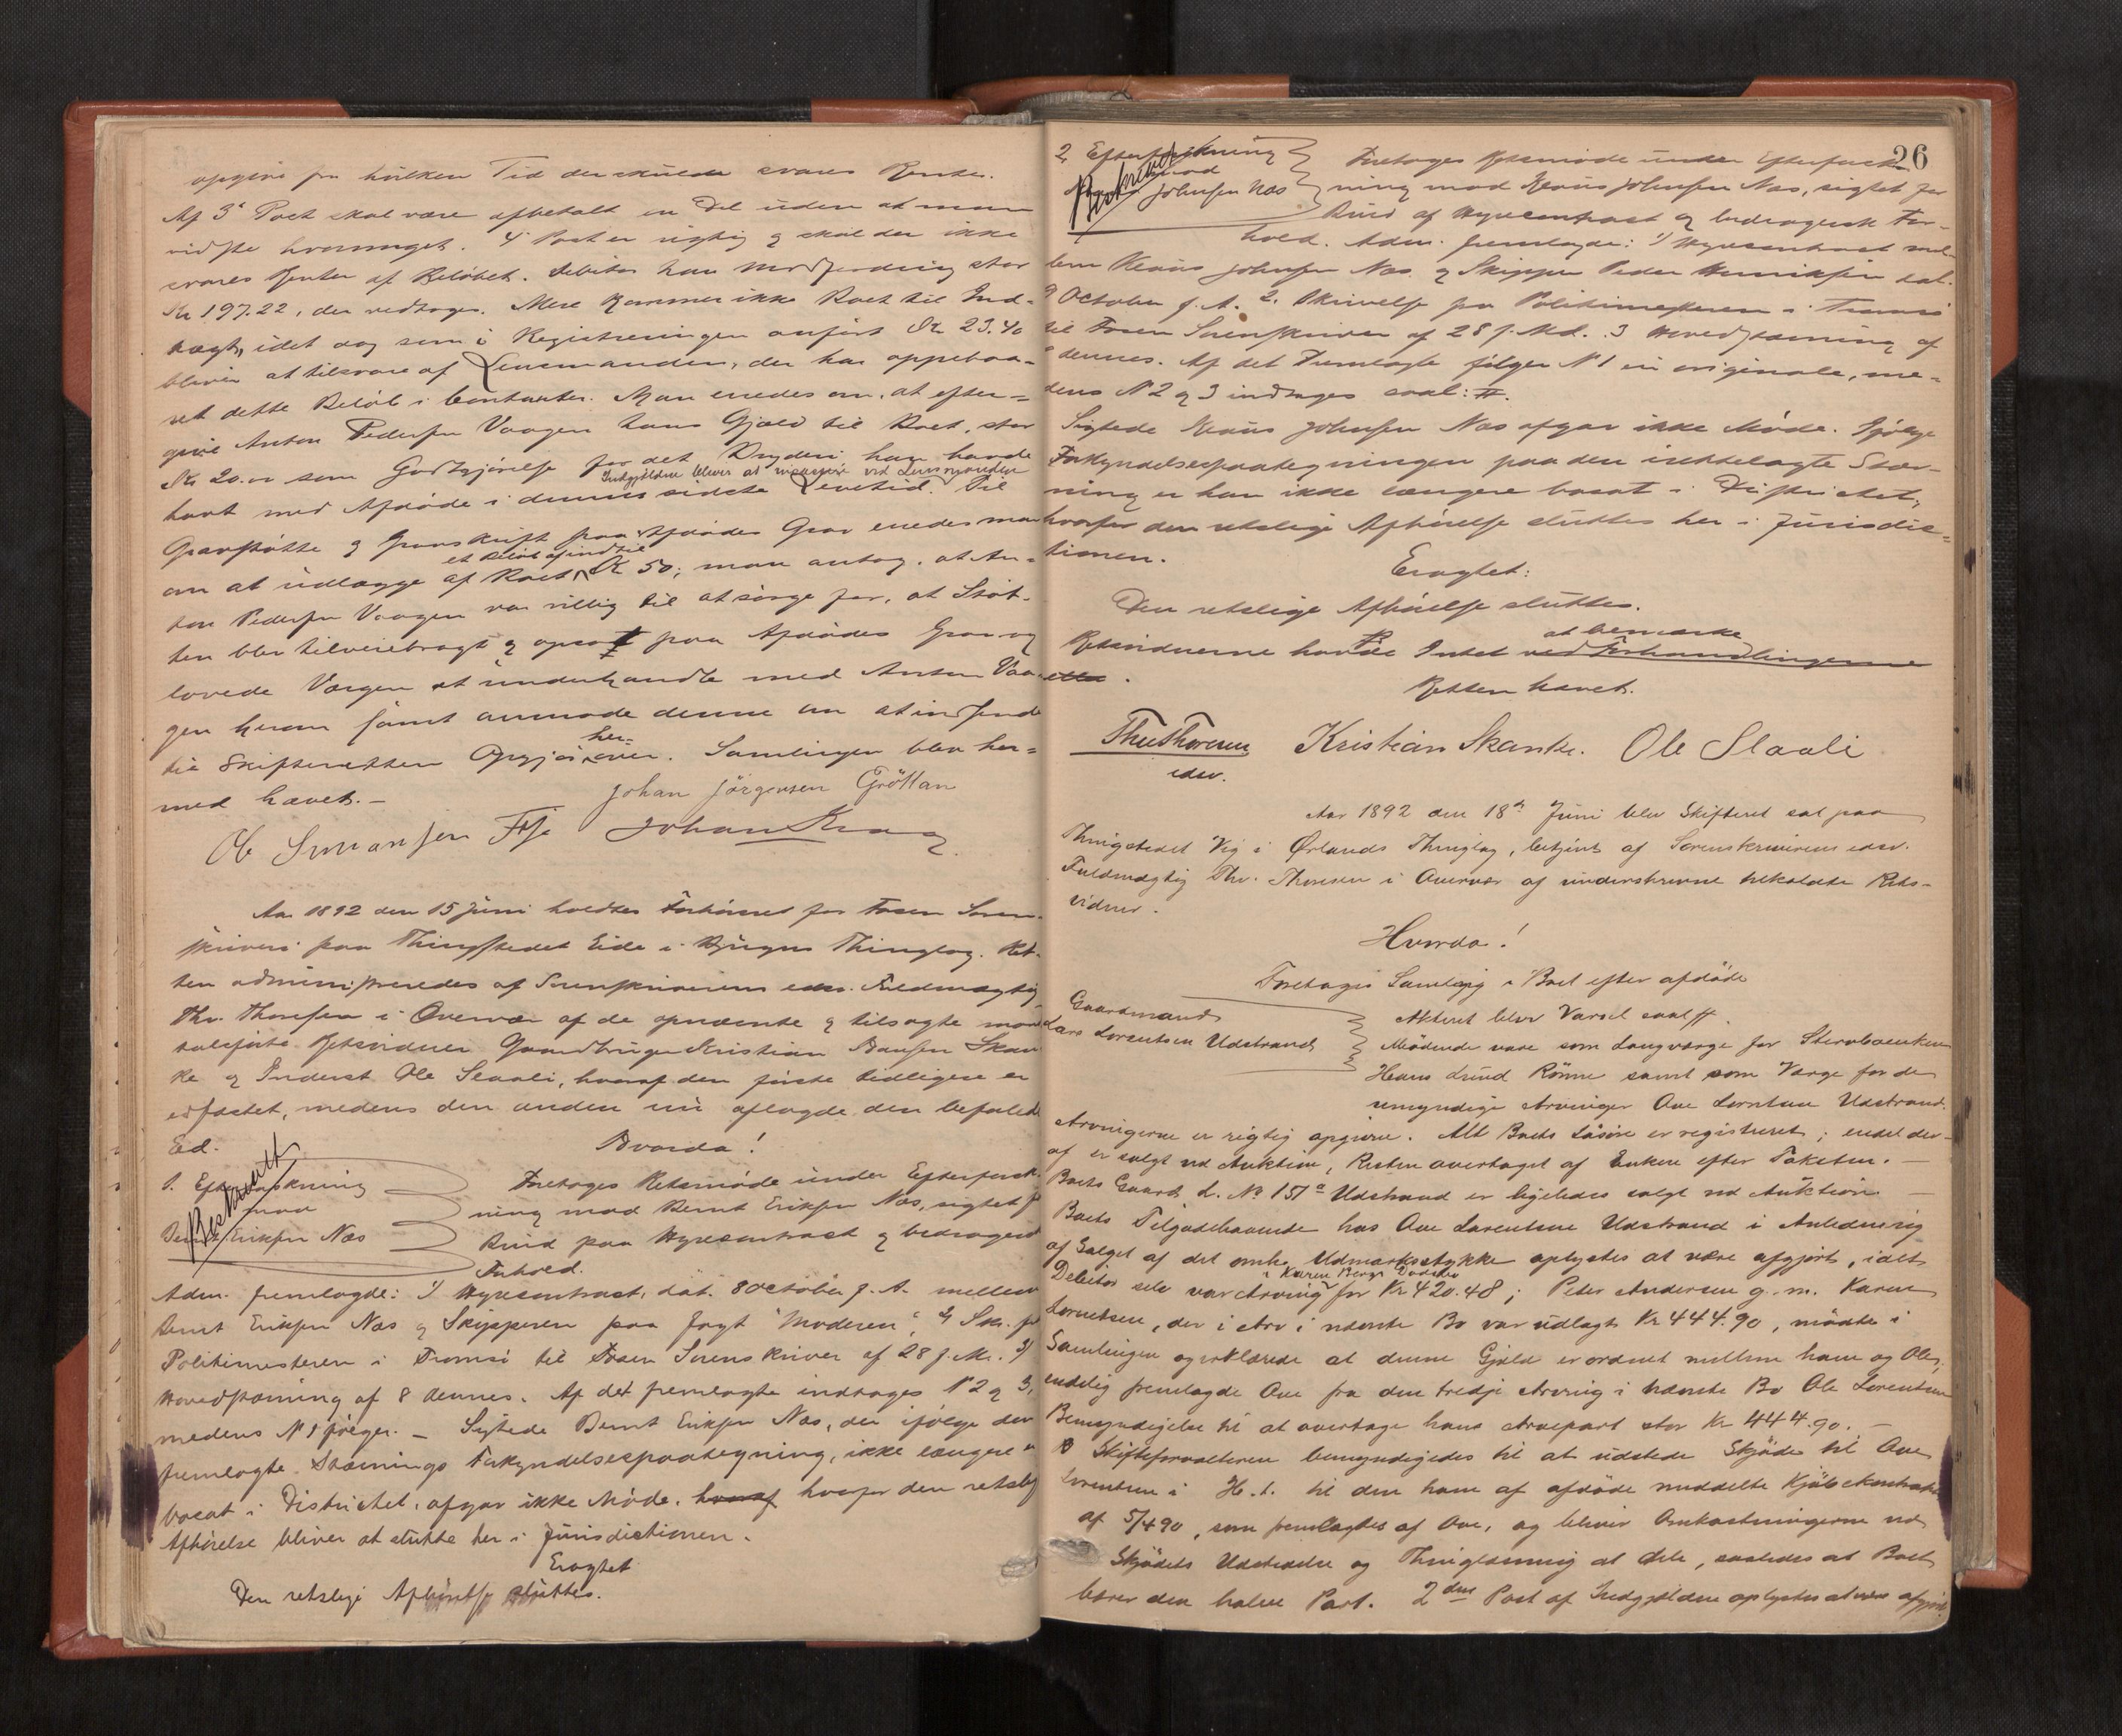 opgive fra hvilken Tid der skulde svares Rente.
Af 3' Post skal være afbetalt en Del uden at man
vidste hvormeget. 4' Post er rigtig og skal der ikke
svares Renter af Beløbet. Debitor har Modfordring stor
Kr 197.22, der vedtoges. Mere kommer ikke Boet til Ind-
tægt, idet dog som i Registreringen anført Kr 23.40
bliver at tilsvare af Lensmanden, der har oppebaa-
ret dette Beløb i Contanter. Man enedes om, at efter-
give Anton Pedersen Vaagen hans Gjæld til Boet, stor
Kr 20.00 som Godtgjørelse for det Bryderi han havde
Indgjælden bliver at inddrive ved Lensmanden
havt med Afdøde i dennes sidste Levetid. Til
Gravstøtte og Gravskrift paa Afdødes Grav enedes man
et Beløb af indtil
om at udlægge af Boet Kr 50; man antog, at An-
ton Pedersen Vaagen var villig til at sørge for, at Støt-
ten blev tilveiebragt og opsat paa Afdødes Grav og
lovede Værgen at underhandle med Anton Vaa-
gen herom samt anmode denne om at indsende
her-
til Skifteretten Opgjør over. Samlingen blev her-
med hævet. -
Johan Jörgensen Gröttan
Ole Simonsen Johan Krag
Aar 1892 den 15 Juni holdtes Forhørsret for Fosen Soren-
skriveri paa Thingstedet Eide i Bjugns Thinglag. Ret-
ten administreredes af Sorenskriverens edsv. Fuldmægtig
Thv. Thoresen i Overvær af de opnævnte og tilsagte
Retsvidner Gaardbruger Kristian Hansen Skan-
ke og Inderst Ole Slaali, hvoraf den første tidligere er
edfæstet, medens den anden nu aflagde den befalede
Ed.
Hvorda!
1. Efterforskning
mod
Bernt Eriksen Næs
Beskrevet
Foretoges Retsmøde under Efterforsk-
ning mod Bernt Eriksen Næs, sigtet for
Brud paa Hyrecontract og bedragersk
Forhold.
Adm. fremlagde: 1) Hyrecontract, dat. 8 october f. A. mellem
Bernt Eriksen Næs og Skipperen paa Jagt "Moderen", 2) Skr. fra
Politimesteren i Tromsø til Fosen Sorenskriver af 28 f. M. 3)
Hovedstævning af 8 dennes. Af det fremlagte indtages N 2 og 3,
medens N 1 følger. - Sigtede Bernt Eriksen Næs, der ifølge den
fremlagte Stævnings Forkyndelsespaategning, ikke længere er
bosat i Districtet, afgav ikke Møde, hvoraf hvorfor den retslige
Afhørelse bliver at slutte her i Jurisdictionen.
Eragtet
Den retslige Afhørelse sluttes.
26
2, Efterforskning
mod
Johnsen Næs
Beskrevet
Foretoges Retsmøde under Efterforsk-
ning mod Johnsen Næs, sigtet for
Brud af Hyrecontract og bedragersk For-
hold. Adm. fremlagde: 1) Hyrecontract mel-
lem Johnsen Næs og Skipper Peder Henriksen dat.
9 October f. A. 2. Skrivelse fra Politimesteren i Tromsø
til Fosen Sorenskriver af 28 f. Md. 3 Hovedstævning af
8 dennes. Af det Fremlagte følger N 1 in originale, me-
dens N 2 og 3 indtages saal:
Sigtede Johnsen Næs afgav ikke Møde. Ifølge
Forkyndelsespaategningen paa den irettelagte Stæv-
ning er han ikke længere bosat i Districtet,
hvorfor den retslige Afhørelse sluttes her i Jurisdic-
tionen.
Eragtet:
Den retslige Afhørelse sluttes.
at bemærke
Retsvidnerne havde Intet ved Forhandlingerne
Retten hævet.
Thv Thoresen Kristian Skanke. Ole Slaali
edsv.
Aar 1892 den 18de Juni blev Skifteret sat paa
Thingstedet Vig i Ørlands Thinglag, betjent af Sorenskriverens edsv.
Fuldmægtig Thv. Thoresen i Overvær af underskrevne tilkaldte Rets-
vidner.
Hvorda!
Foretoges Samling i Boet efter afdøde
Gaardmand
Lars Lorentsen Udstrand
Akturet blev Varsel saal
Mødende vare som Laugværge for Stervboenken
Hans Lund Rönne samt som Værge for de
umyndige Arvinger Ove Lorntsen Udstrand.
Arvingerne er rigtig opgivne. Alt Boets Løsøre er registreret; endel der-
af er solgt ved Auktion, Resten overtaget af Enken efter Taksten. -
Boets Gaard L. No 151a Udstrand er ligeledes solgt ved Auktion -
Boets Tilgodehavende hos Ove Lorentsen Udstrand i Anledning
af Salget af det omh. Udmarksstykke oplystes at være afgjort, idet
i Karen Bergs Dødsbo
Debitor selv var Arving for Kr 420.48; Peter Andersen g. m. Karen
Lorentsen, der i Arv i nævnte Bo var udlagt Kr 444.90, mødte i
Samlingen og erklærede at denne Gjæld er ordnet mellem ham og Ole;
endelig fremlagde Ove fra den tredje Arving i nævnte Bo Ole Lorentsen
Bemyndigelse til at overtage hans Arvepart stor Kr 444.90. -
Skifteforvalteren bemyndigedes til at udstede Skjøde til Ove
Lorentsen i H. t. til den ham af afdøde meddelte Kjøbekontrakt
af 5/4 90, som fremlagdes af Ove, og bliver Omkostningerne ved
Skjødets Udstedelse og Thinglæsning at dele, saaledes at Boet
bærer den halve Part. 2den Post af Indgjælden oplystes at være afgjort